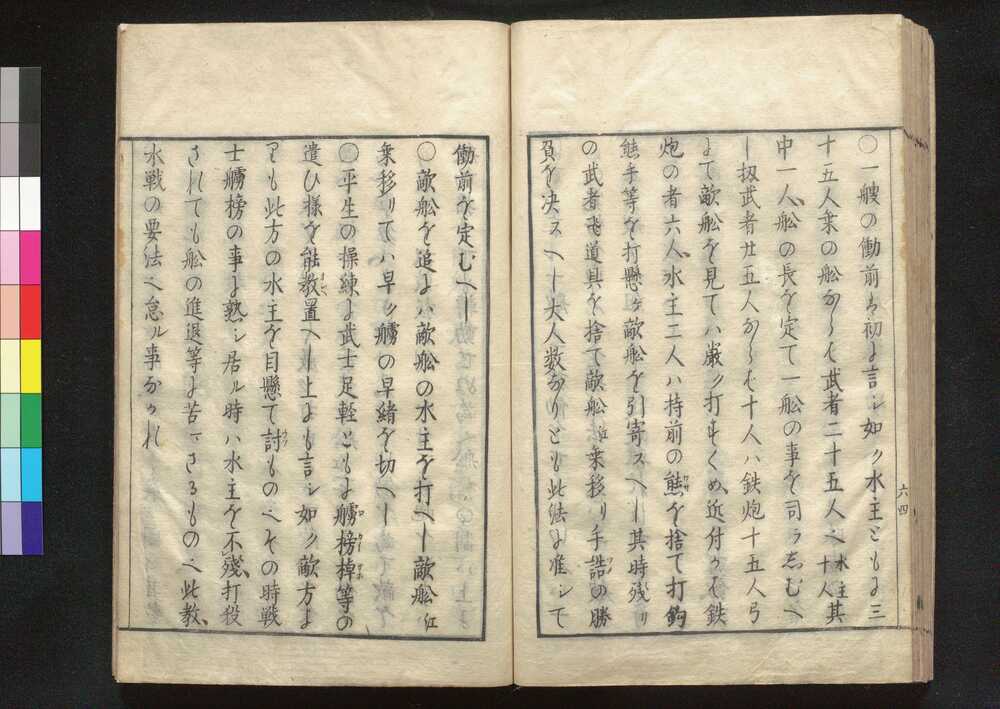 〇一艘の働前は初に言シ如ク水主ともに三
十五人乗の舩ならは武者二十五人ヘ水主十人其
中一人、舩の長を定て一舩の事を司らしむヘ
し扨武者廿五人ならは十人ハ鉄炮十五人弓
にて敵舩を見てハ厳ク打すくめ、近付かは鉄
炮の者六人、水主二人ハ持前の態を捨て打鉤
熊手等を打懸ケ敵舩を引寄スヘし其時残リ
の武者飛道具を捨て敵舩江乗移リ手詰の勝
負を决スヘし大人数なりとも此法に准シて
六四
働前を定むヘし
〇敵舩を追にハ敵舩の水主を打ヘし敵舩江
乗移リてハ早ク艣の早緒を切ヘし
〇平生の操練に武士足軽ともに艣榜棹等の
遣ひ様を能教置ヘし上にも言シ如ク敵方よ
りも此方の水主を目懸て討ものヘその時戦
士艣榜の事に熟シ居ル時ハ水主を不残、打殺
されても舩の進退等に苦マさるものヘ此教、
水戦の要法ヘ怠ル事なかれ